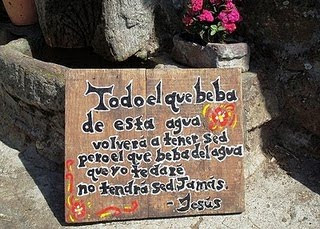 Todo el que beba
de esta agua
volverá a tener sed
pero el que beba del agua
que yo te daré
no tendrá sed Jamás.
- Jesús